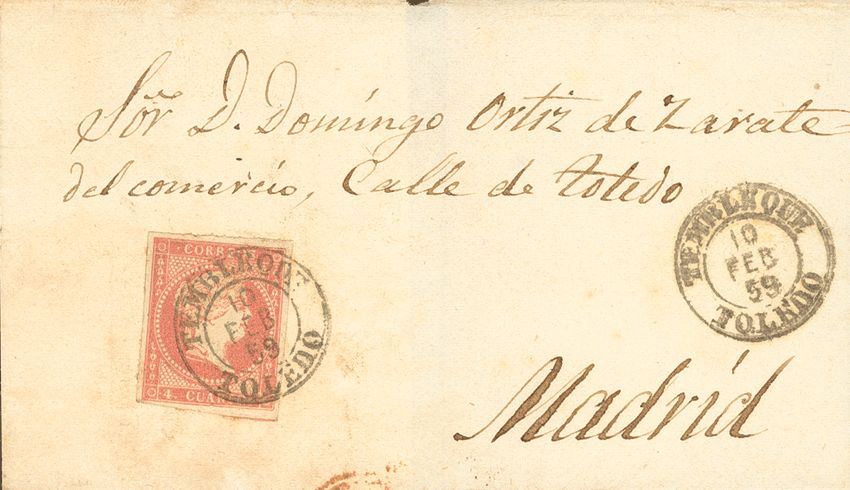 Sör D. Domingo Ortiz de Zarate
del comercio, Calle de Toledo
TEMBLEQUE
10
FEB
59
TOLEDO
CORREOS
TEMBLEQUE
10
FEB
59
TOLEDO
4 CUA
Madrid